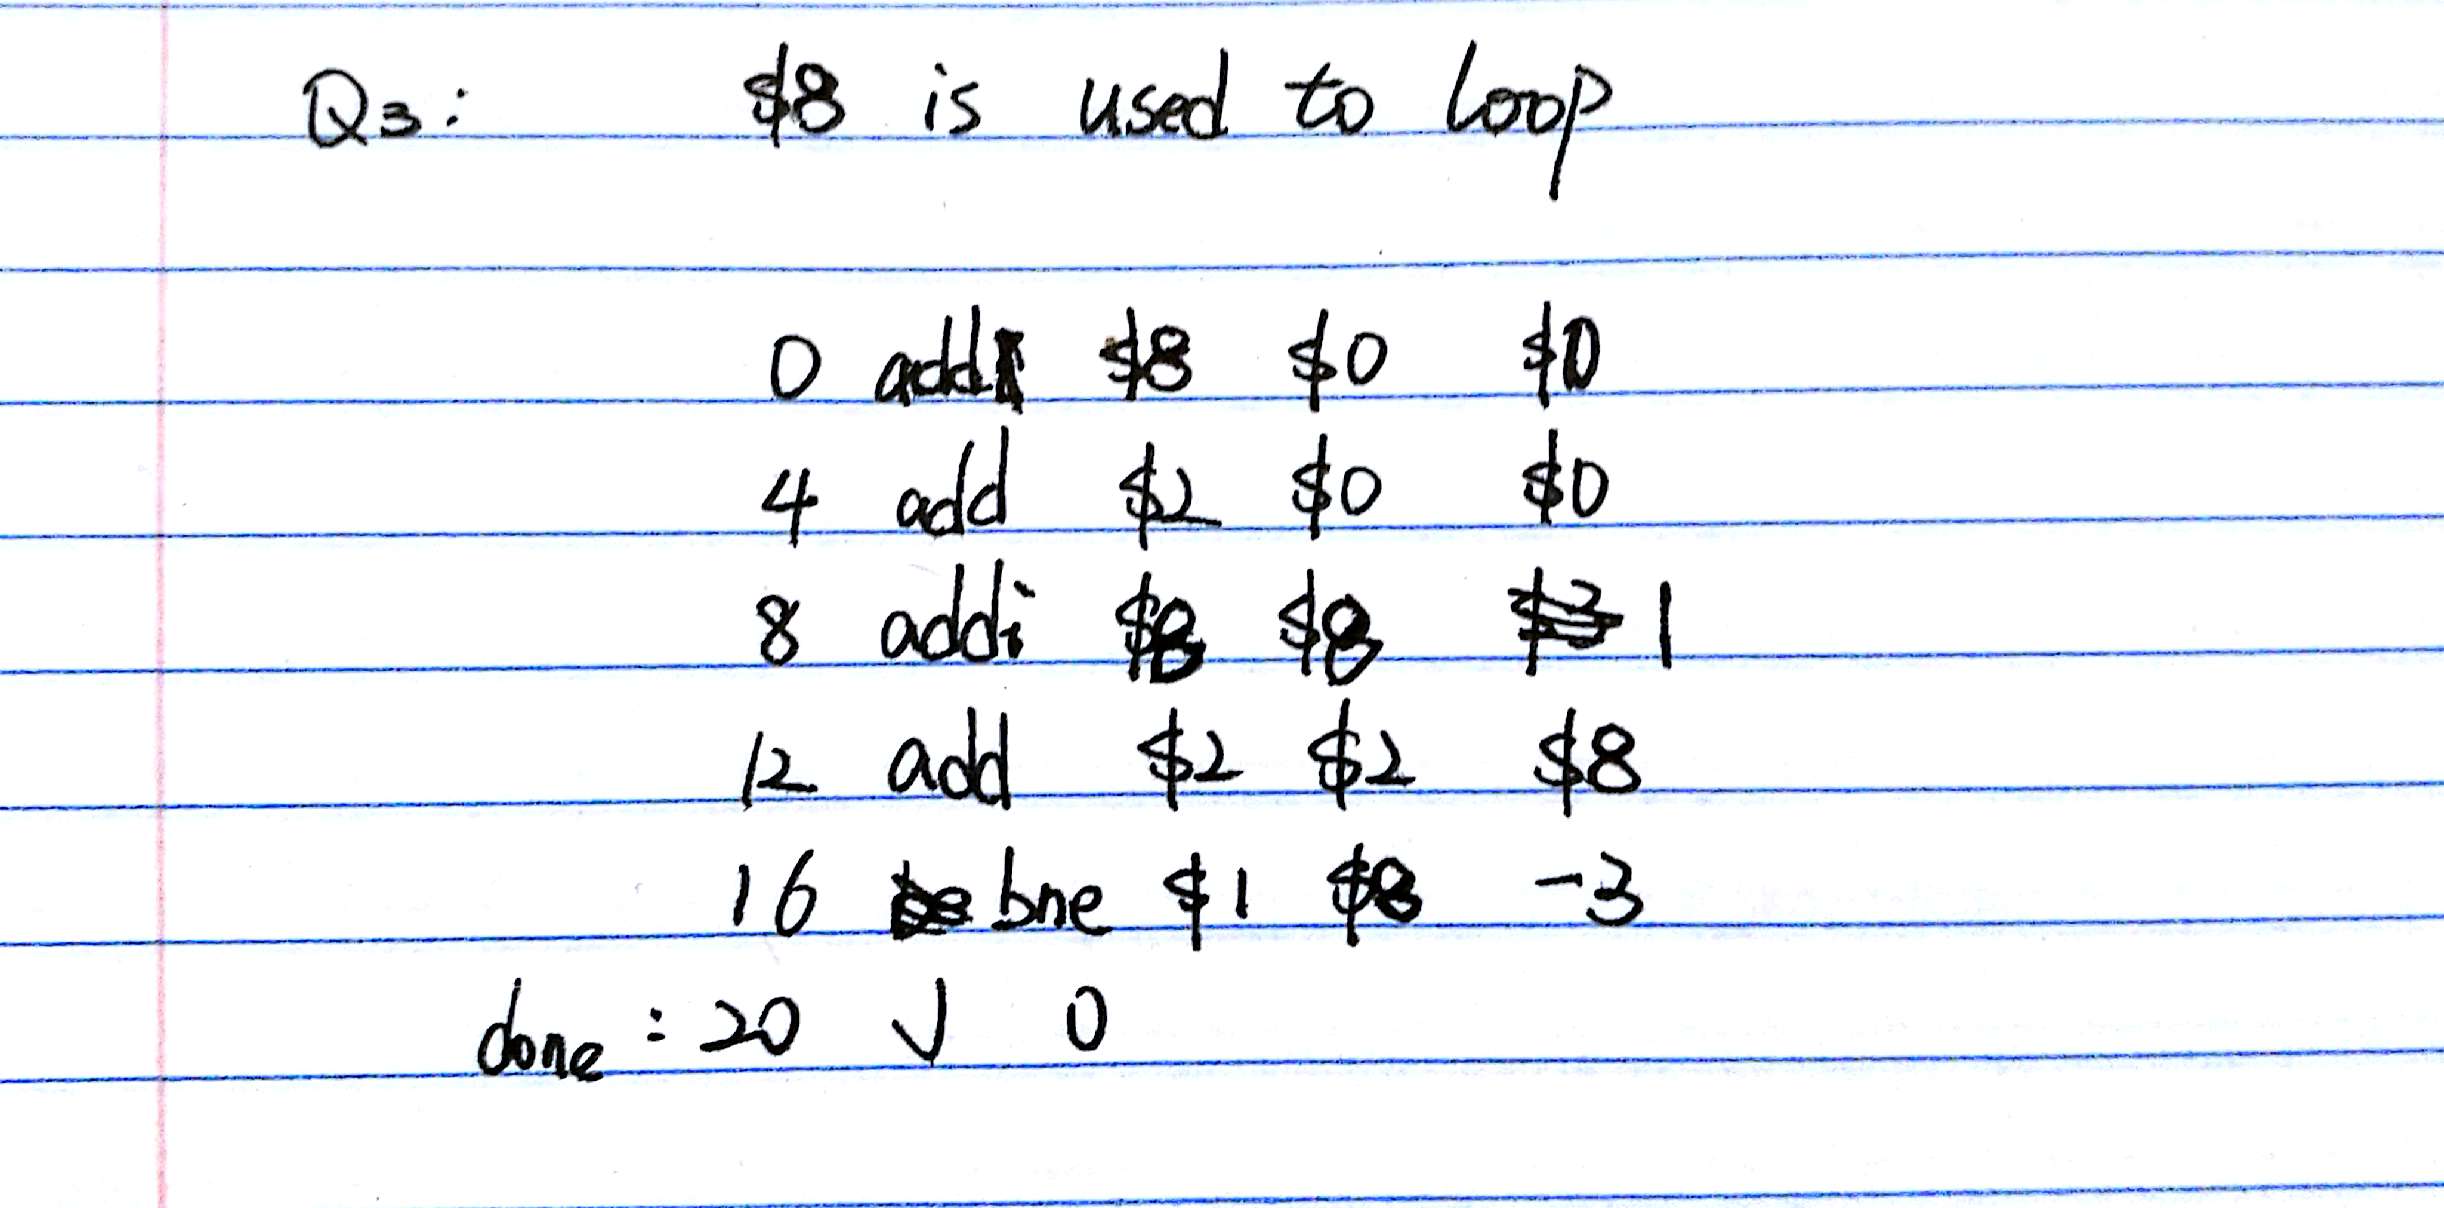 Q3: $8 is used to loop
0 add $8 $0 $0
4 add $2 $0 $0
8 addi $8 $8 1
12 add $2 $2 $8
16 bne $1 $8 -3
done: 20 J 0